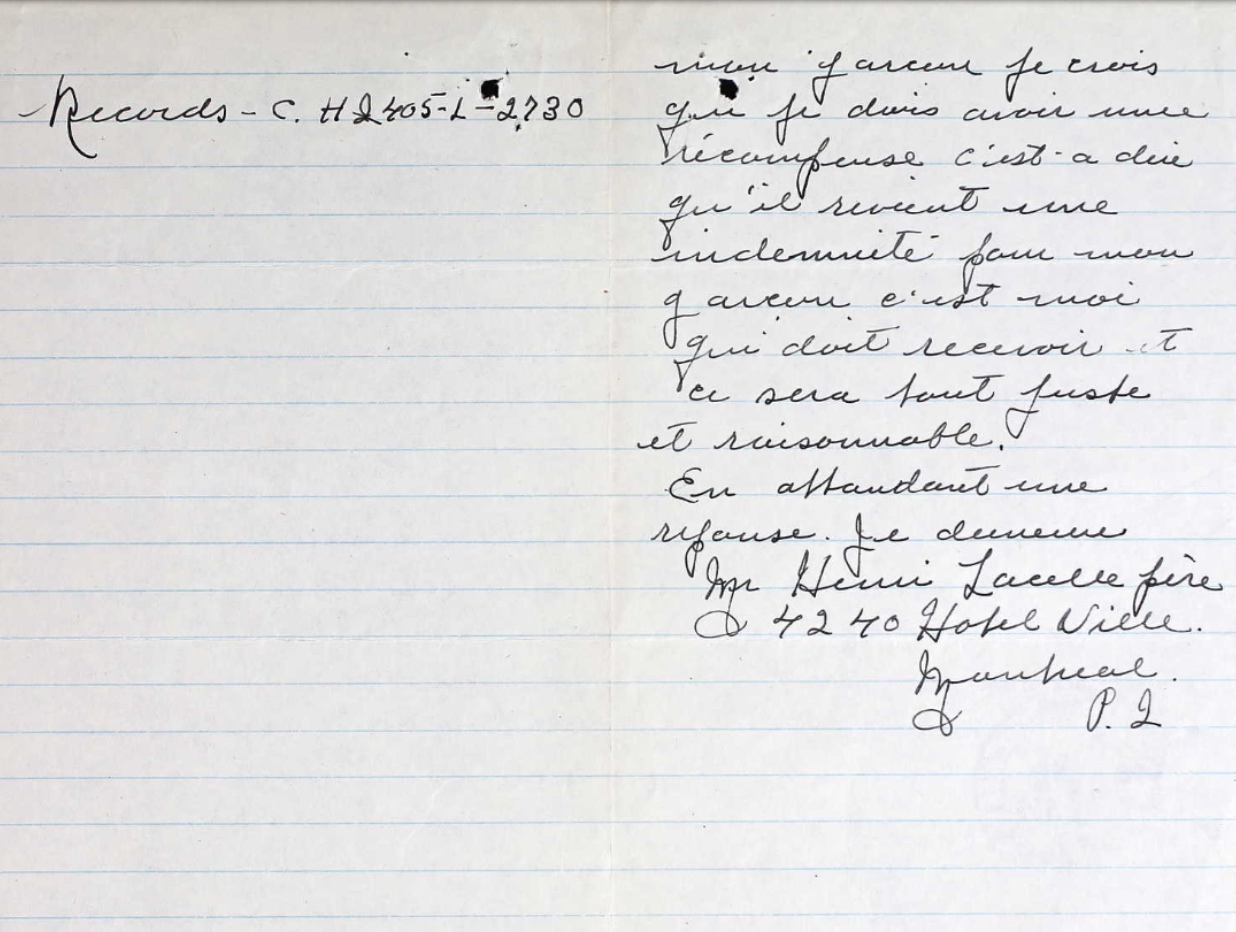 Records - C. H Q 405-L-2730
mon garcon je crois
que je dois avoir une
récompense c'est-a dire
qu'il revient une
indemnité pour mon
garcon c'est moi
qui doit recevoir et
ce sera tout juste
et raisonnable.
En attandant une
reponse. Je demeure
Mr Henri Lacelle père
4240 Hotel Ville.
Montreal.
P. Q